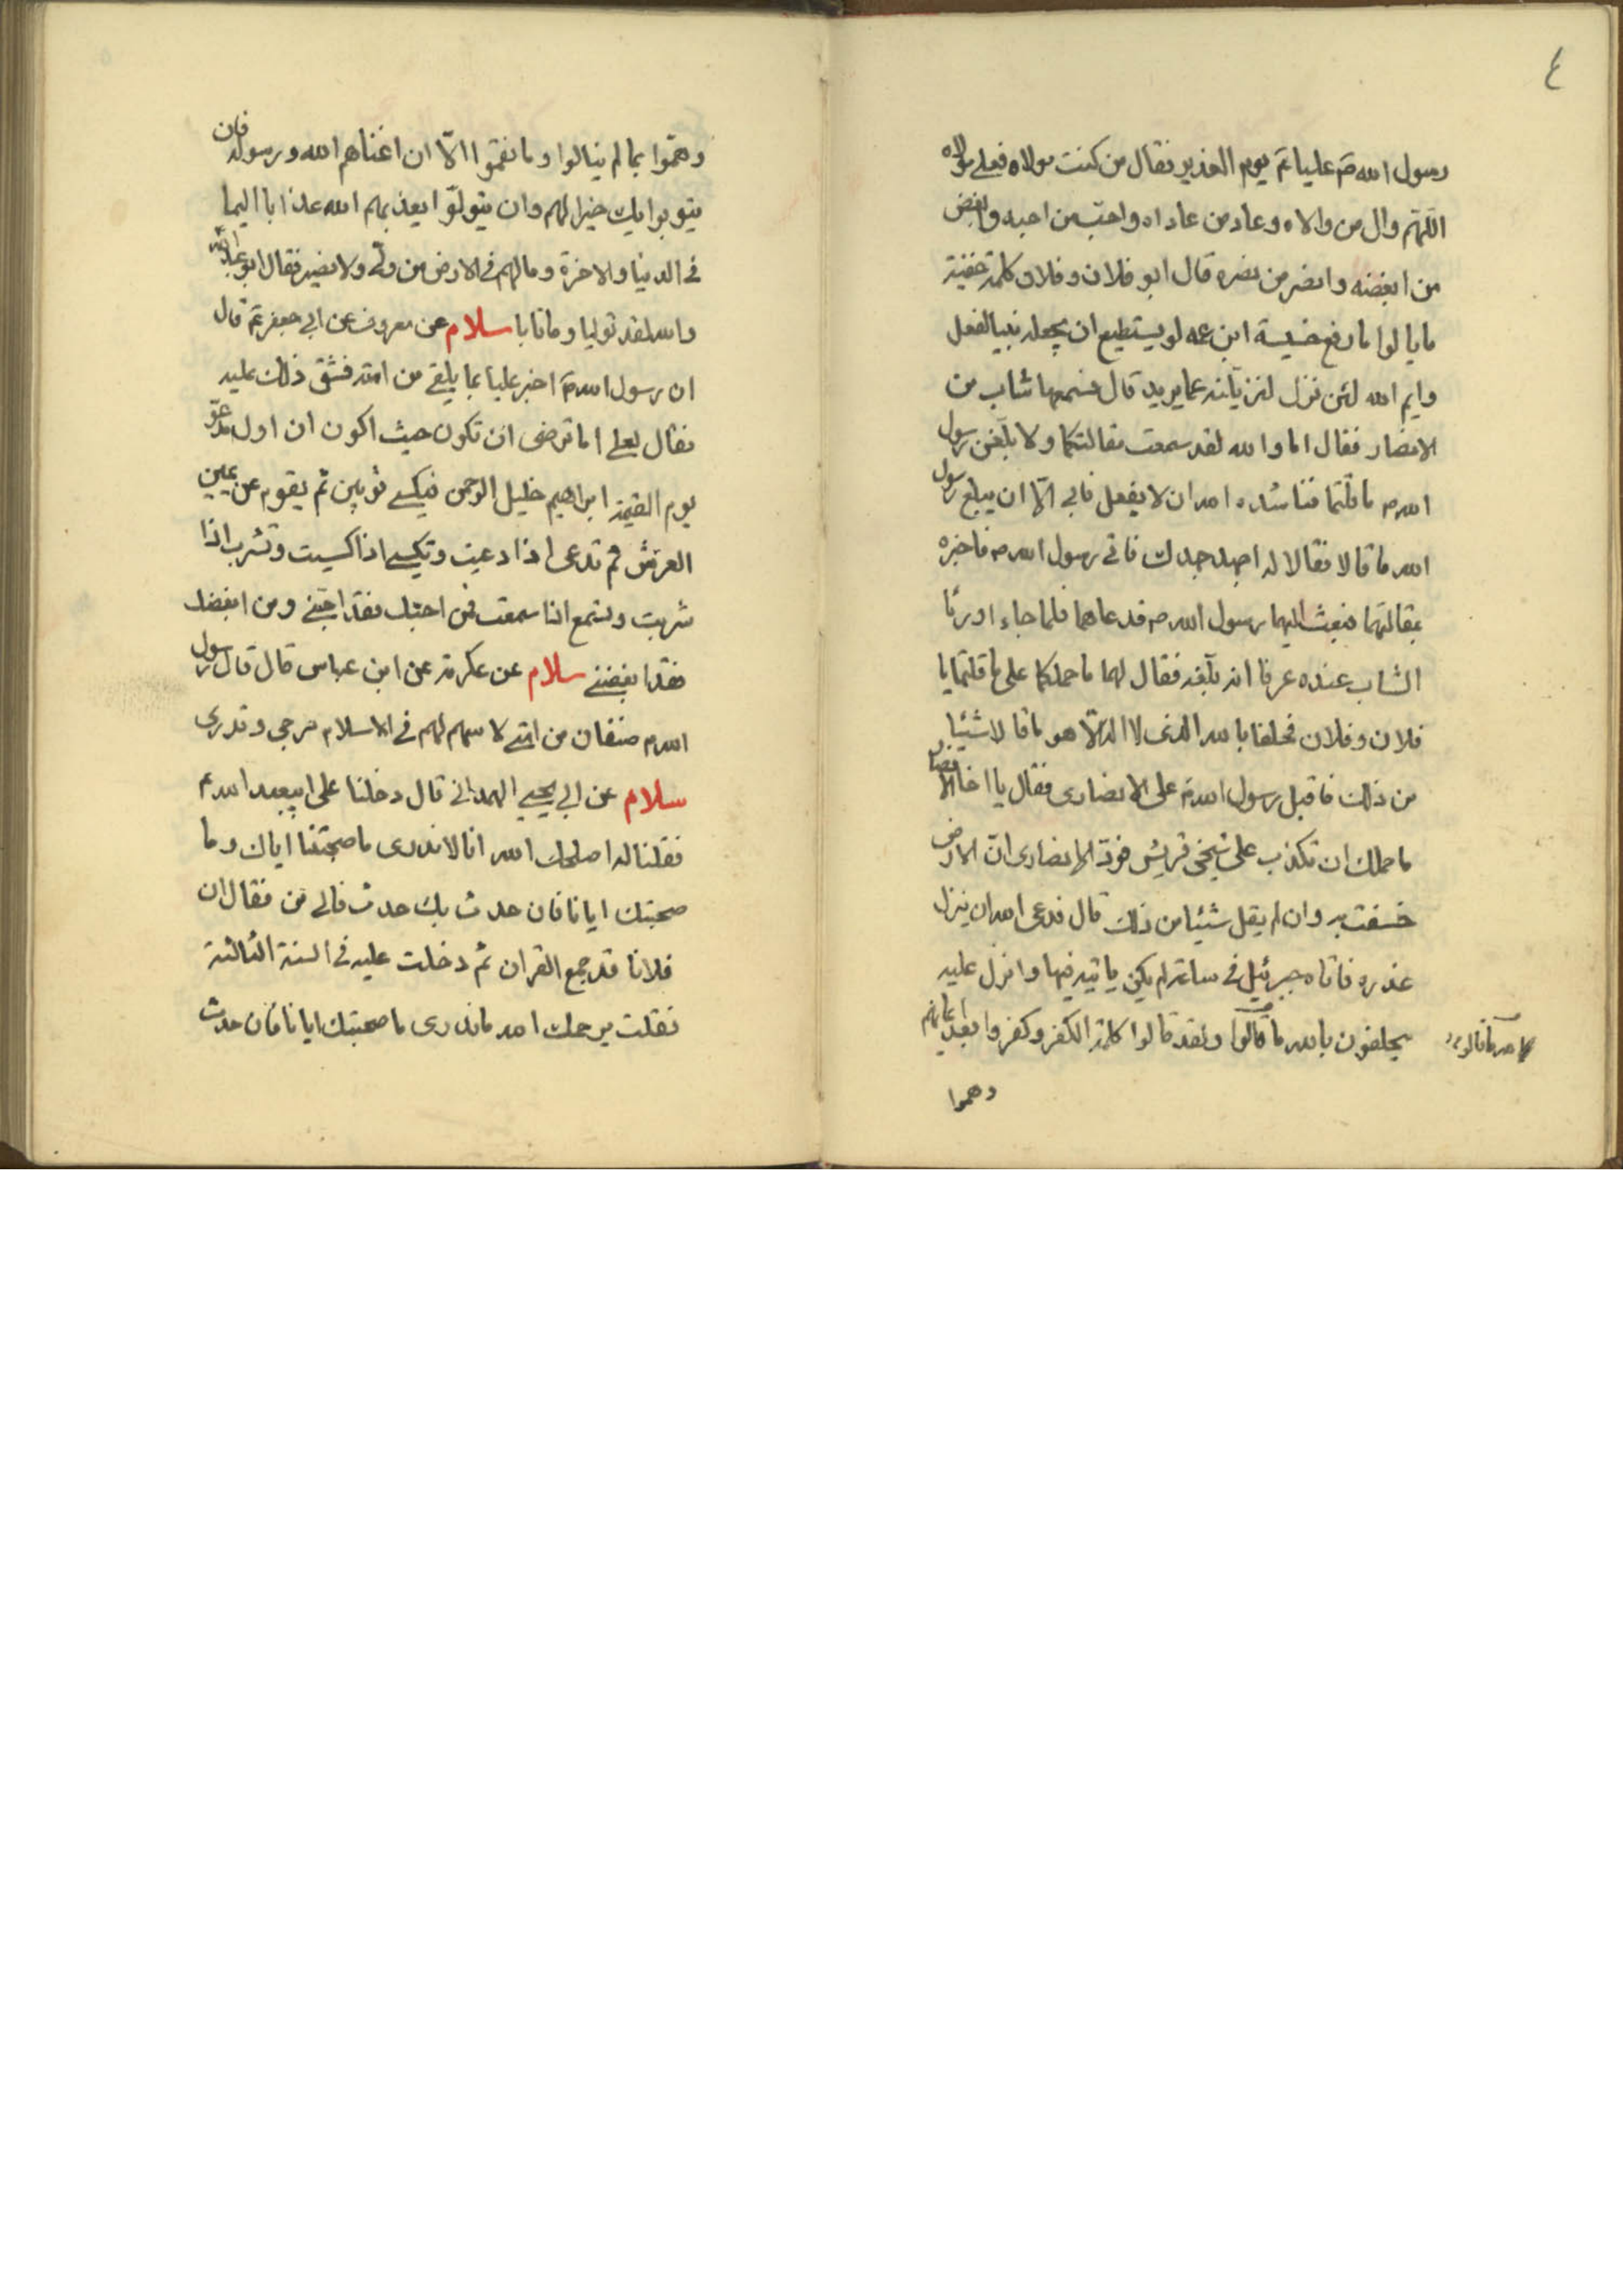 ٤
رسول الله ص عليا ع يوم الغدير فقال من كنت مولاه فعلي مولاه
اللهم وال من والاه وعاد من عاداه واحب من احبه وابغض
من ابغضه وانصر من نصره قال ابو فلان وفلان كلمة خفية
ما يالوا ما رفع خسيسة ابن عمه لو يستطيع ان يجعله نبيا لفعل
وايم الله لئن نزل عما يريد قال فسمعها شاب من
الانصار فقال اما والله لقد سمعت مقالتكما ولابلغن رسول
الله ص ما قلتما فناشداه الله ان لا يفعل فابى الا ان يبلغ رسول
الله ما قالا فقالا له اجهد جهدك فاتى رسول الله ص فاخبره
بمقالتهما فبعث اليهما رسول الله ص فدعاهما فلما جاءا ورئا
الشاب عنده عرفا انه بلغه فقال لهما ما حملكما على ما قلتما يا
فلان وفلان فحلفا بالله الذى لا اله الا هو ما قالا شيئا
من ذلك فاقبل رسول الله ص على الانصارى فقال يا اخا الانصار
ما حملك ان تكذب على شيخى قريش فود الانصارى ان الارض
خسفت به وان لم يقل شيئا من ذلك قال فدعى الله ان ينزل
عذره فاتاه جبرئيل فى ساعة لم يكن ياتيه فيها وانزل عليه
يحلفون بالله ما قالوا ولقد قالوا كلمة الكفر وكفروا بعد ايمانهم
وهموا
وهموا بما لم ينالوا وما نقموا الا ان اغناهم الله ورسوله فان
يتوبوا يك خيرا لهم وان يتولوا يعذبهم الله عذابا اليما
فى الدنيا والاخرة وما لهم فى الارض من ولى ولا نصير فقال ابو عبد الله
والله لقد توليا وما تابا سلام عن معروف عن ابى جعفر ع قال
ان رسول الله ص اخبر عليا بما يلقى من امته فشق ذلك عليه
فقال لعلى اما ترضى ان تكون حيث اكون ان اول مدعو
يوم القيمة ابراهيم خليل الرحمن فيكسى ثوبين ثم يقوم عن يمين
العرش ثم تدعى اذا دعيت وتكسى اذا كسيت وتشرب اذا
شربت وتسمع اذا سمعت فمن احبك فقد احبنى ومن ابغضك
فقد ابغضنى سلام عن عكرمة عن ابن عباس قال قال رسول
الله ص صنفان من امتى لا سهم لهم فى الاسلام مرجى وقدرى
سلام عن ابى يحيى الهمدانى قال دخلنا على ابيعبد الله ع
فقلنا له اصلحك الله انا لا ندرى ما صحبتنا اياك وما
صحبتك ايانا فان حدث بك حدث فالى من فقال ان
فلانا قد جمع القران ثم دخلت عليه فى السنة الثالثة
فقلت يرحمك الله ما ندرى ما صحبتك ايانا فان حدث